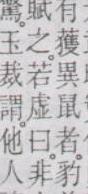 有獲異鼠者豹
賦之若虛曰非
驚玉裁謂他人